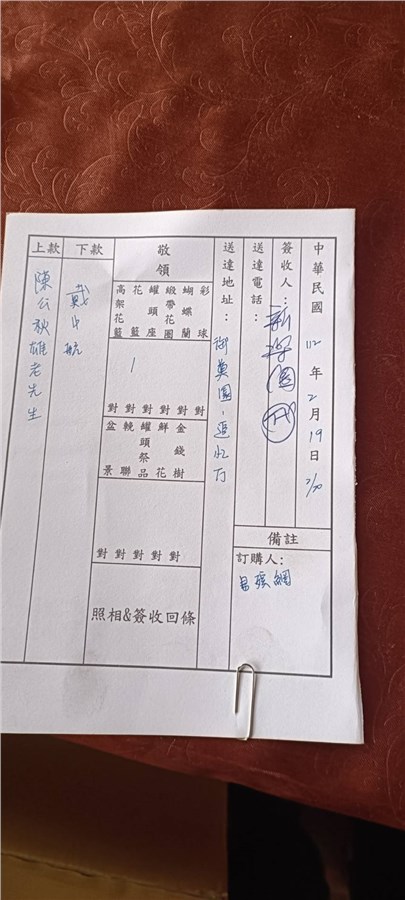 中華民國 112 年 2 月 19 日 2/20
簽收人：
送達電話：
送達地址：
備註
訂購人：
敬領
彩球
蝴蝶蘭
緞帶花圈
罐頭座
花籃
高架花籃
1
對 對 對 對 對 對
金錢樹
鮮花
罐頭祭品
輓聯
盆景
對 對 對 對 對
照相&簽收回條
下款
戴中航
上款
陳公秋雄老先生